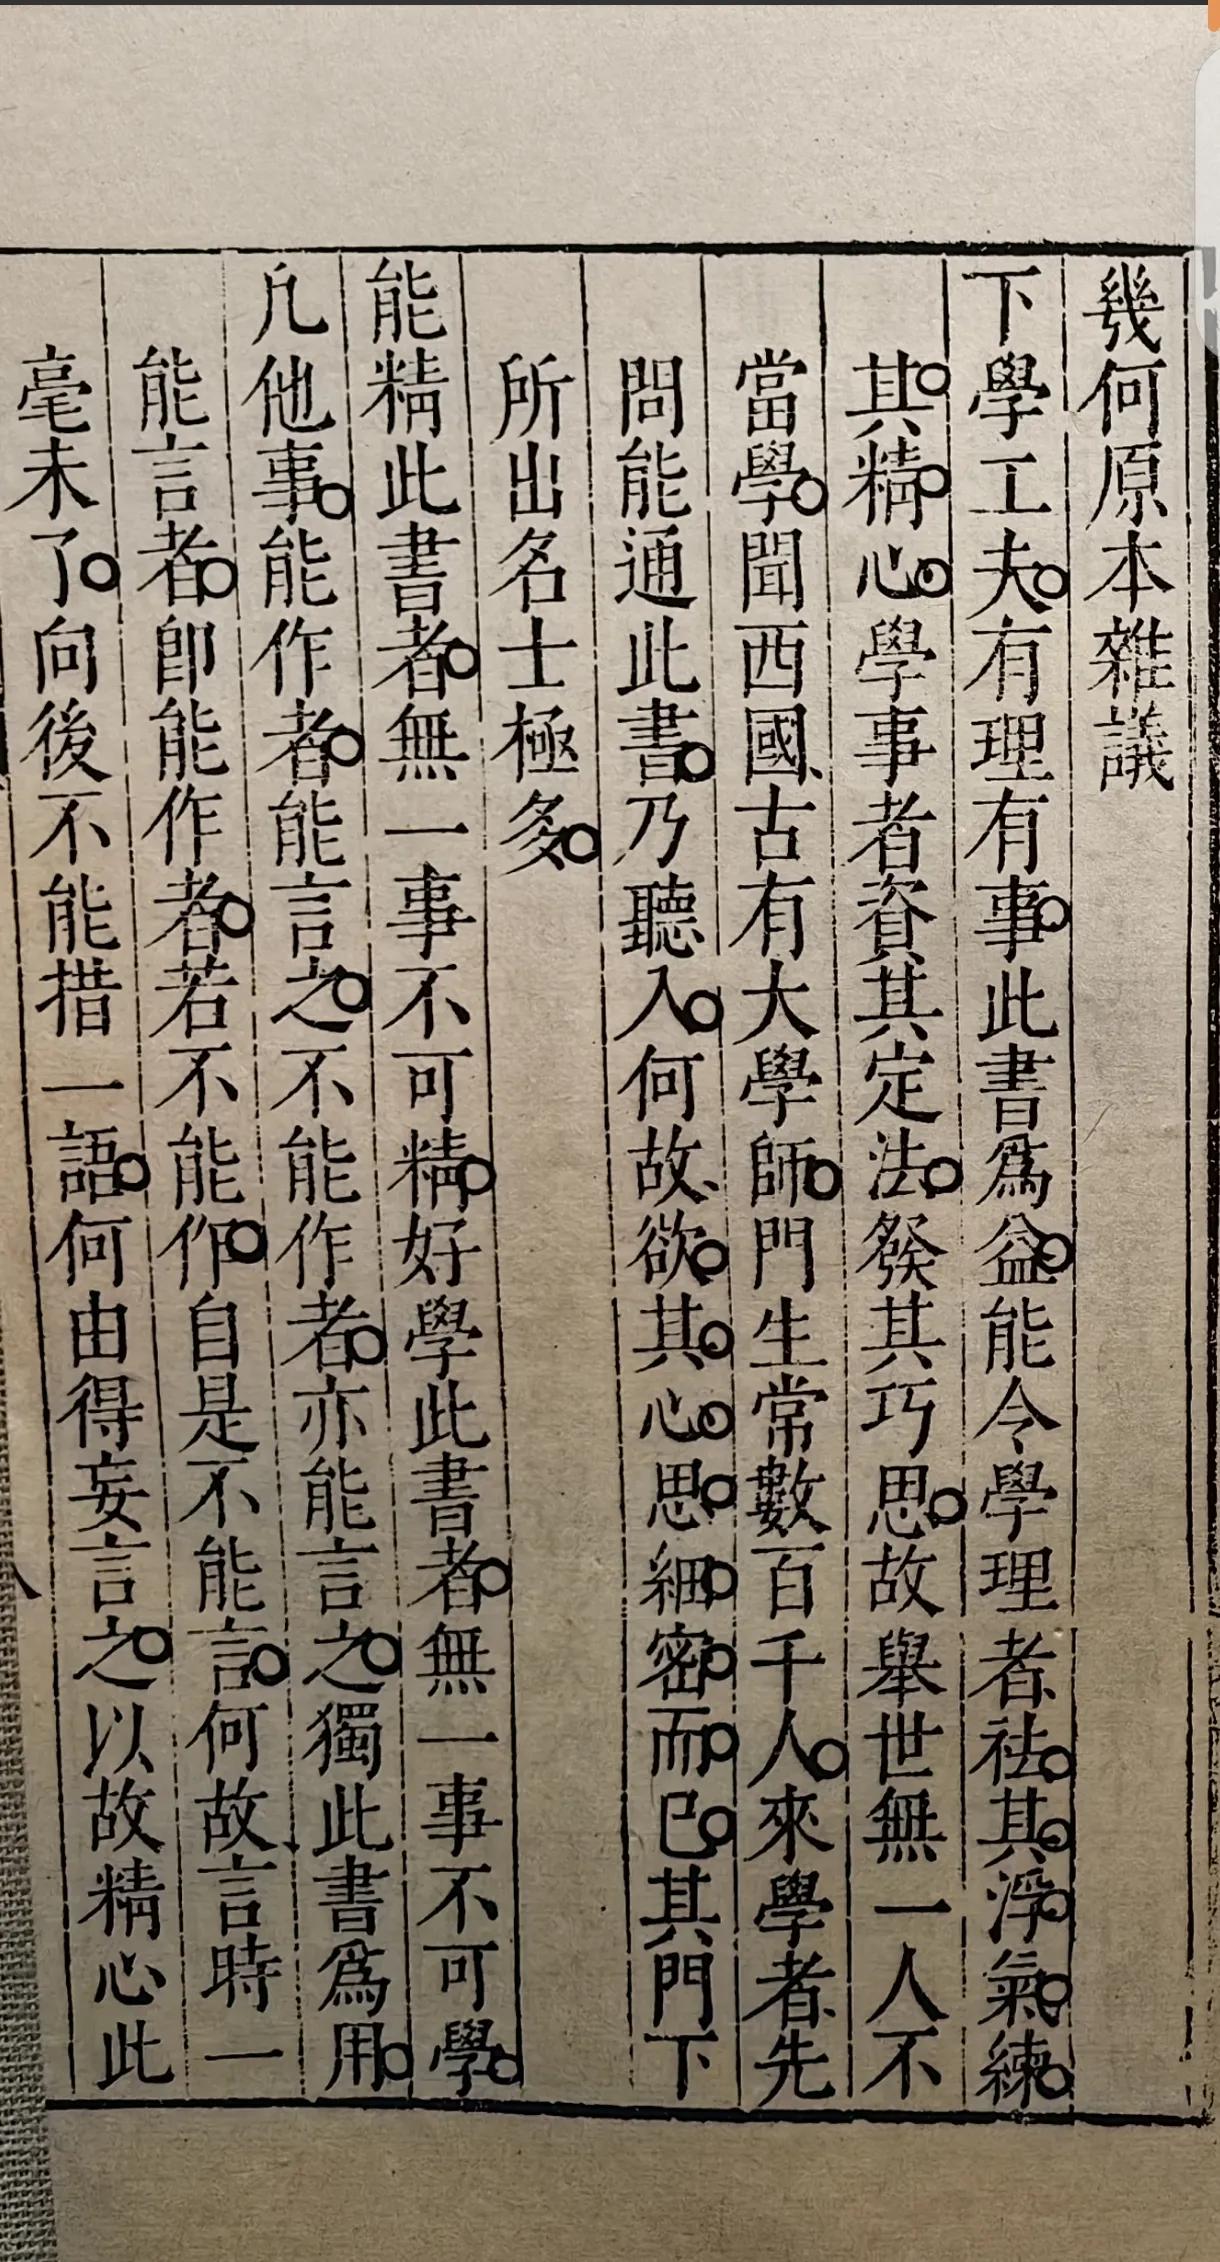 幾何原本雜議
下學工夫有理有事此書爲益能令學理者祛其浮氣練
其精心學事者資其定法發其巧思故舉世無一人不
當學聞西國古有大學師門生常數百千人來學者先
問能通此書乃聽入何故欲其心思細密而已其門下
所出名士極多
能精此書者無一事不可精好學此書者無一事不可學
凡他事能作者能言之不能作者亦能言之獨此書爲用
能言者卽能作者若不能作自是不能言何故言時一
毫未了向後不能措一語何由得妄言之以故精心此